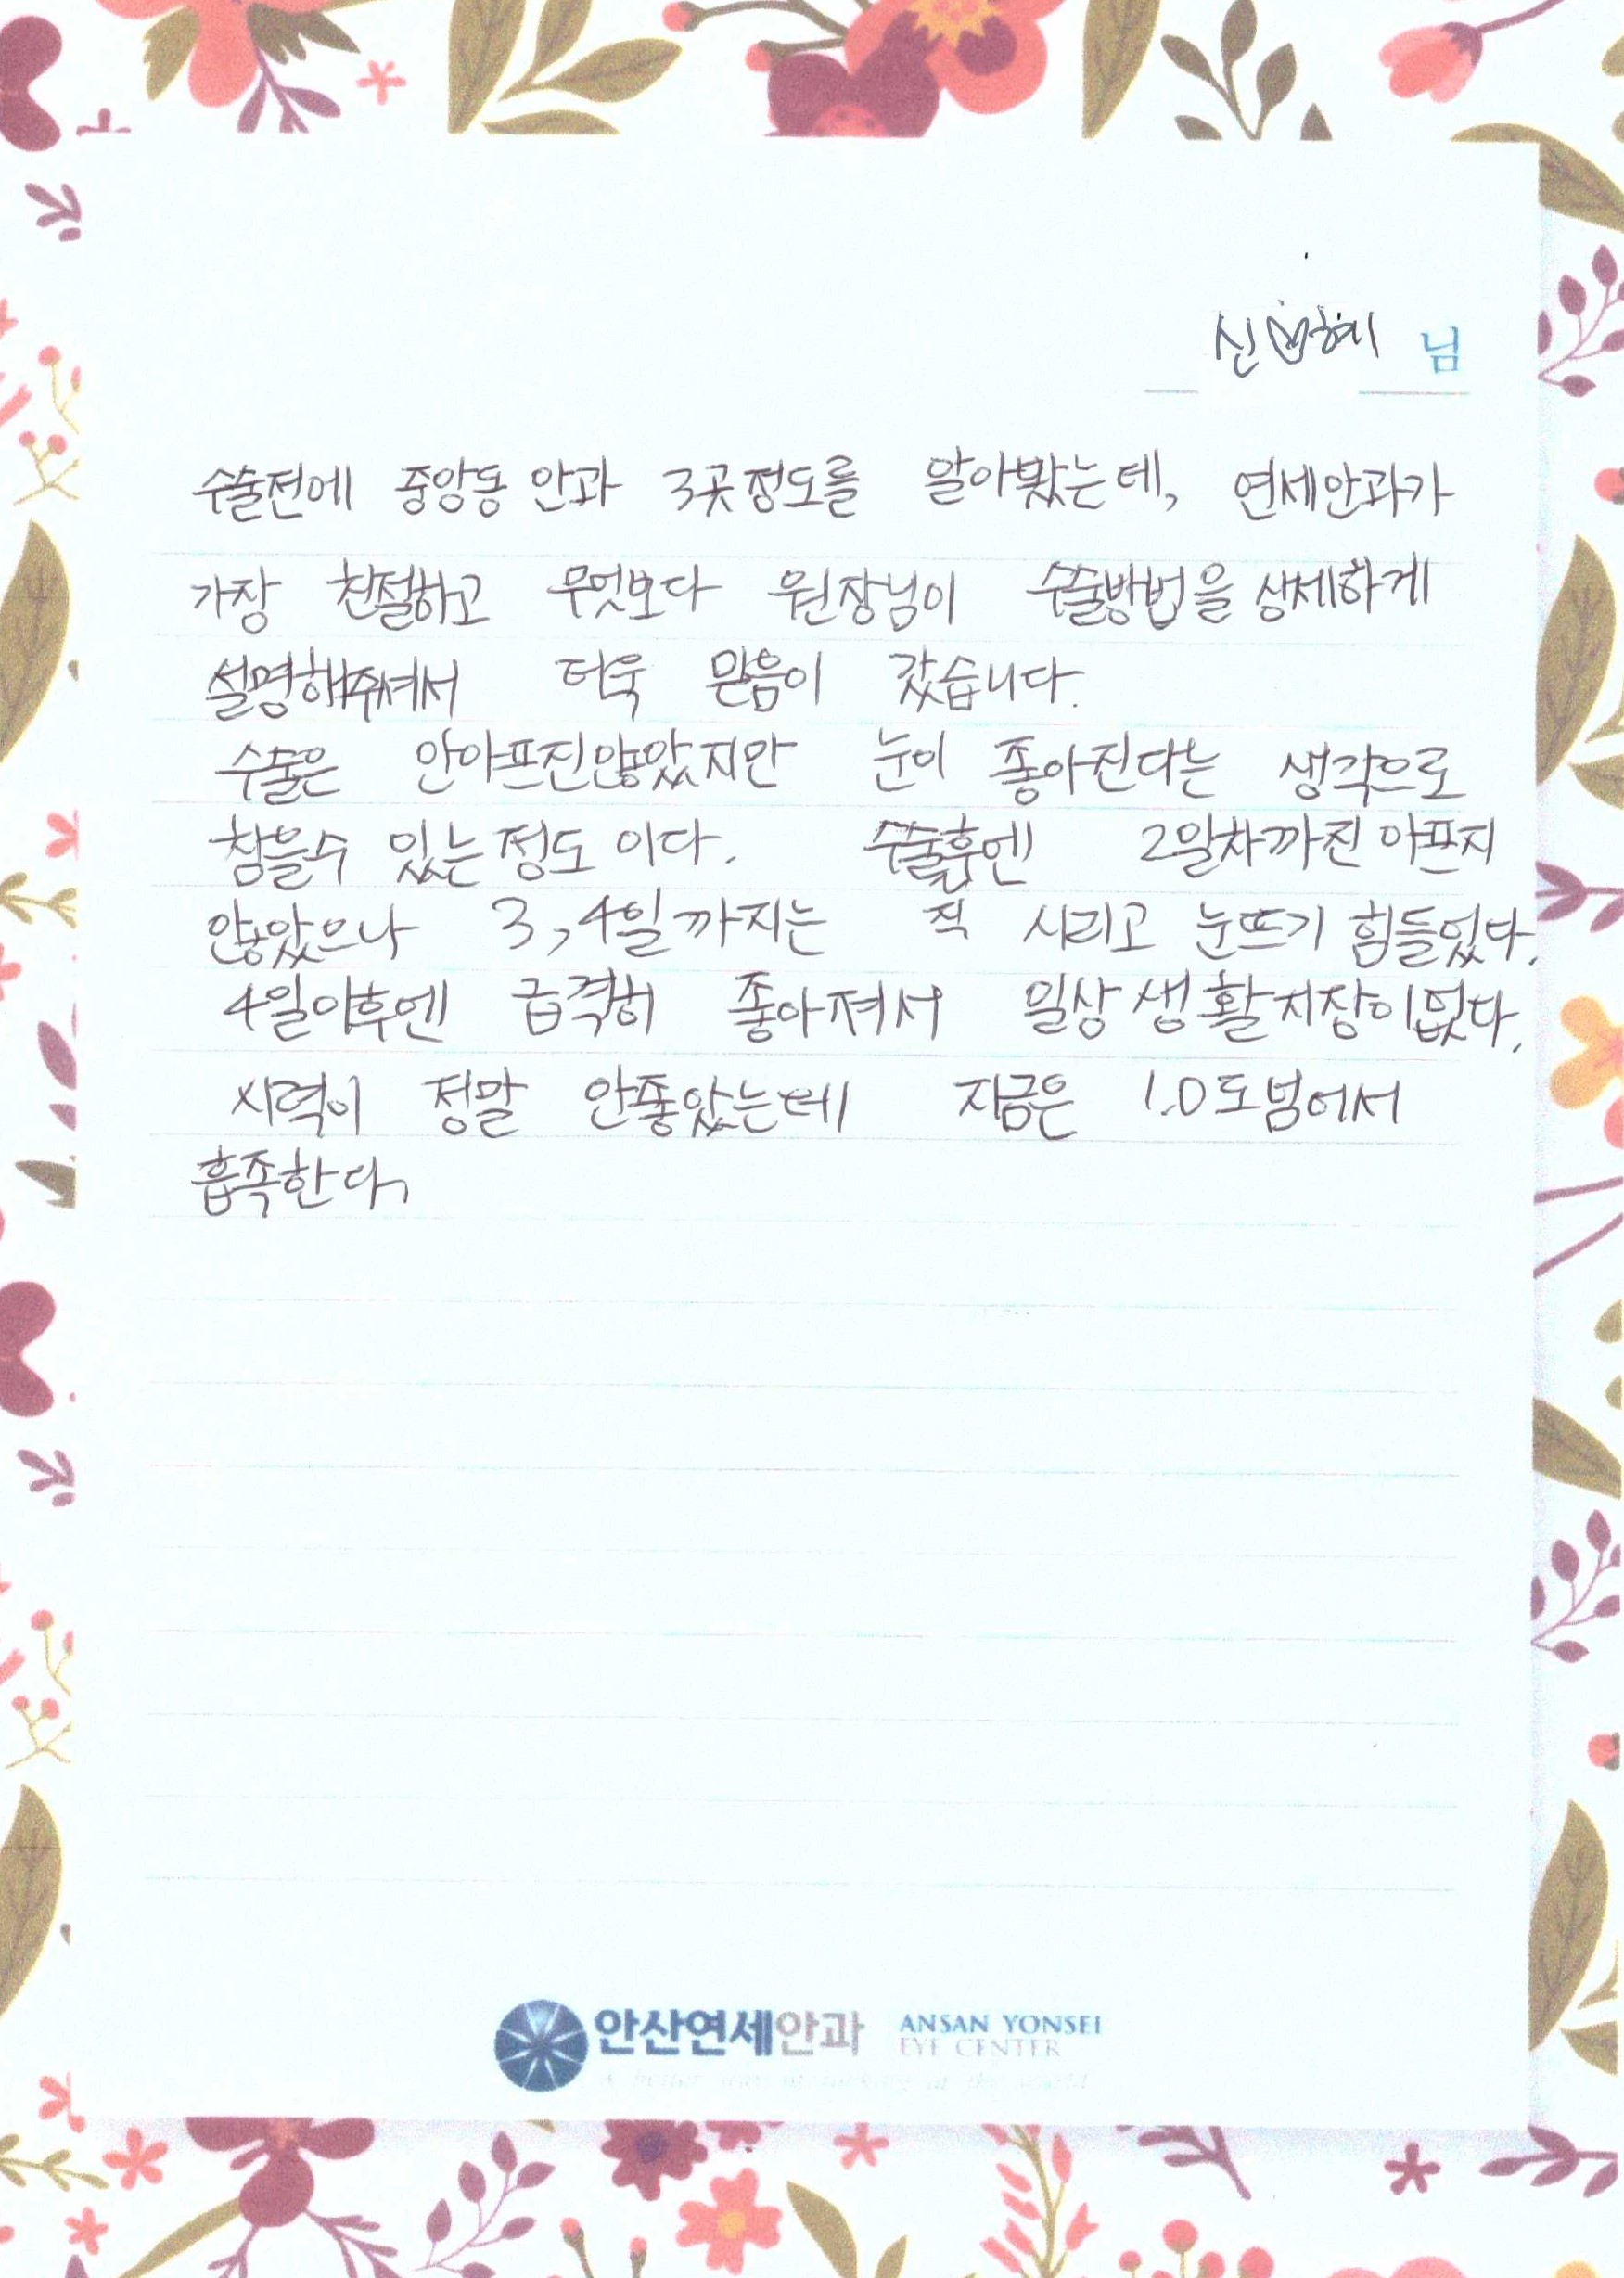 신♡혜 님
수술전에 중앙동 안과 3곳정도를 알아봤는데, 연세안과가
가장 친절하고 무엇보다 원장님이 수술방법을 상세하게
설명해주셔서 더욱 믿음이 갔습니다.
수술은 안아프진않았지만 눈이 좋아진다는 생각으로
참을수 있는정도 이다. 수술후엔 2일차까진 아프지
않았으나 3,4일까지는 직 시리고 눈뜨기 힘들었다.
4일이후엔 급격히 좋아져서 일상생활지장이없다.
시력이 정말 안좋았는데 지금은 1.0도넘어서
흡족한다,
안산연세안과 ANSAN YONSEI
EYE CENTER